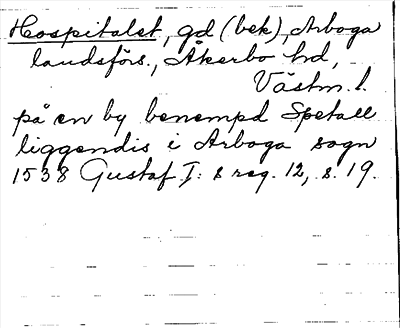 Hospitalet, gd (bek), Arboga
landsförs., Åkerbo hd,
Västm. l.
på en by benempd Spetall
liggendis i Arboga sogn
1538 Gustaf I:s reg. 12, s. 19.